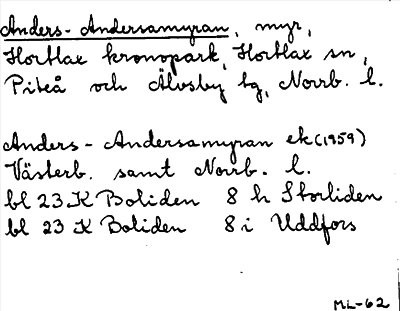 Anders-Andersamyran, myr,
Hortlax kronopark, Hortlax sn,
Piteå och Älvsby tg, Norrb. l.
Anders-Andersamyran ek (1959)
Västerb. samt Norrb. l.
bl 23 K Boliden 8 h Storliden
bl 23 K Boliden 8 i Uddfors
ML-62